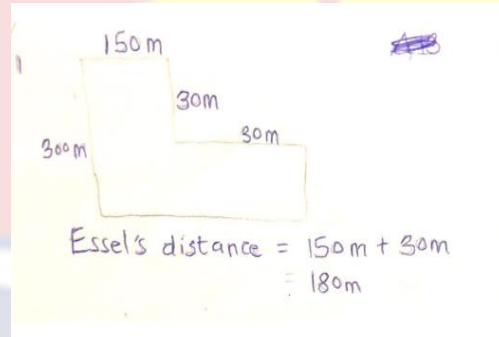 150m
30m
30m
300m
Essel's distance = 150m + 30m
= 180m